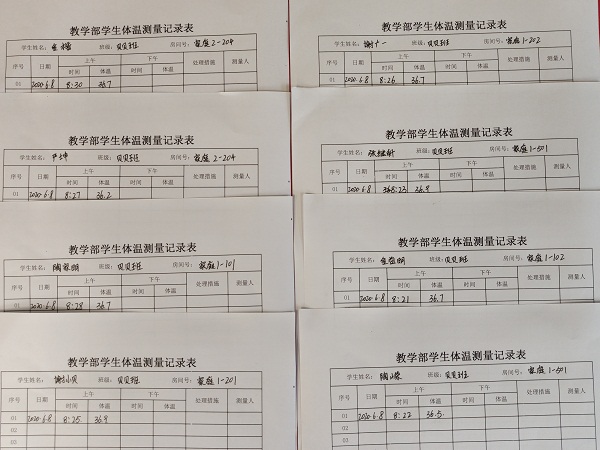 教学部学生体温测量记录表
学生姓名： 班级：贝贝班 房间号：家庭2-204
序号 日期 上午 下午 处理措施 测量人
时间 体温 时间 体温
01 2020.6.8 8:30 36.7
教学部学生体温测量记录表
学生姓名：谢广一 班级：贝贝班 房间号：家庭1-202
序号 日期 上午 下午 处理措施 测量人
时间 体温 时间 体温
01 2020.6.8 8:26 36.7
教学部学生体温测量记录表
学生姓名：尹 班级：贝贝班 房间号：家庭2-204
序号 日期 上午 下午 处理措施 测量人
时间 体温 时间 体温
01 2020.6.8 8:27 36.2
教学部学生体温测量记录表
学生姓名：张 班级：贝贝班 房间号：家庭1-501
序号 日期 上午 下午 处理措施 测量人
时间 体温 时间 体温
01 2020.6.8 8:23 36.9
教学部学生体温测量记录表
学生姓名：陶 班级：贝贝班 房间号：家庭1-101
序号 日期 上午 下午 处理措施 测量人
时间 体温 时间 体温
01 2020.6.8 8:28 36.7
教学部学生体温测量记录表
学生姓名： 班级：贝贝班 房间号：家庭1-102
序号 日期 上午 下午 处理措施 测量人
时间 体温 时间 体温
01 2020.6.8 8:21 36.7
教学部学生体温测量记录表
学生姓名：谢 贝 班级：贝贝班 房间号：家庭1-201
序号 日期 上午 下午 处理措施 测量人
时间 体温 时间 体温
01 2020.6.8 8:25 36.9
02
03
教学部学生体温测量记录表
学生姓名：陶 班级：贝贝班 房间号：家庭1-501
序号 日期 上午 下午 处理措施 测量人
时间 体温 时间 体温
01 2020.6.8 8:22 36.5
02
03